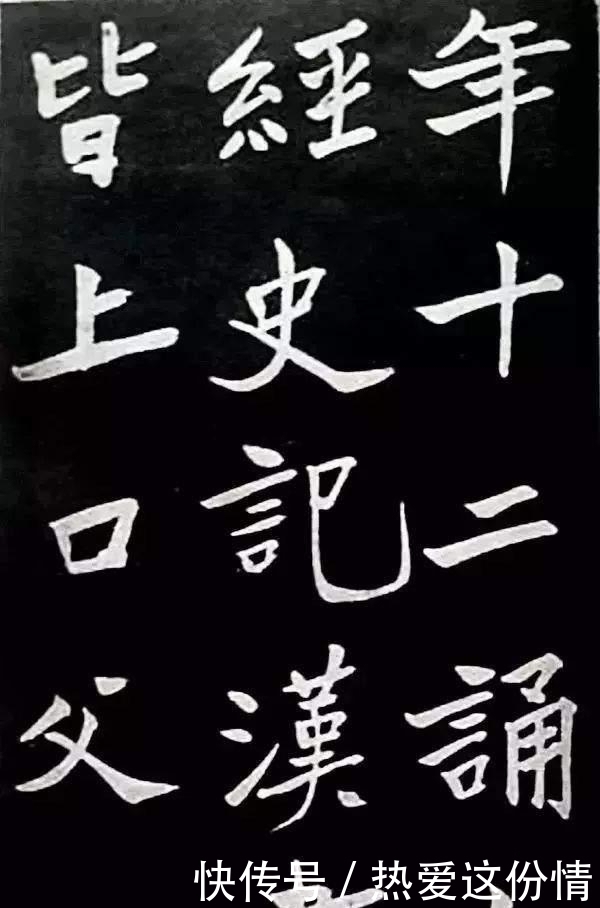 年十二誦
經史記漢
皆上口父
快传号/热爱这份情